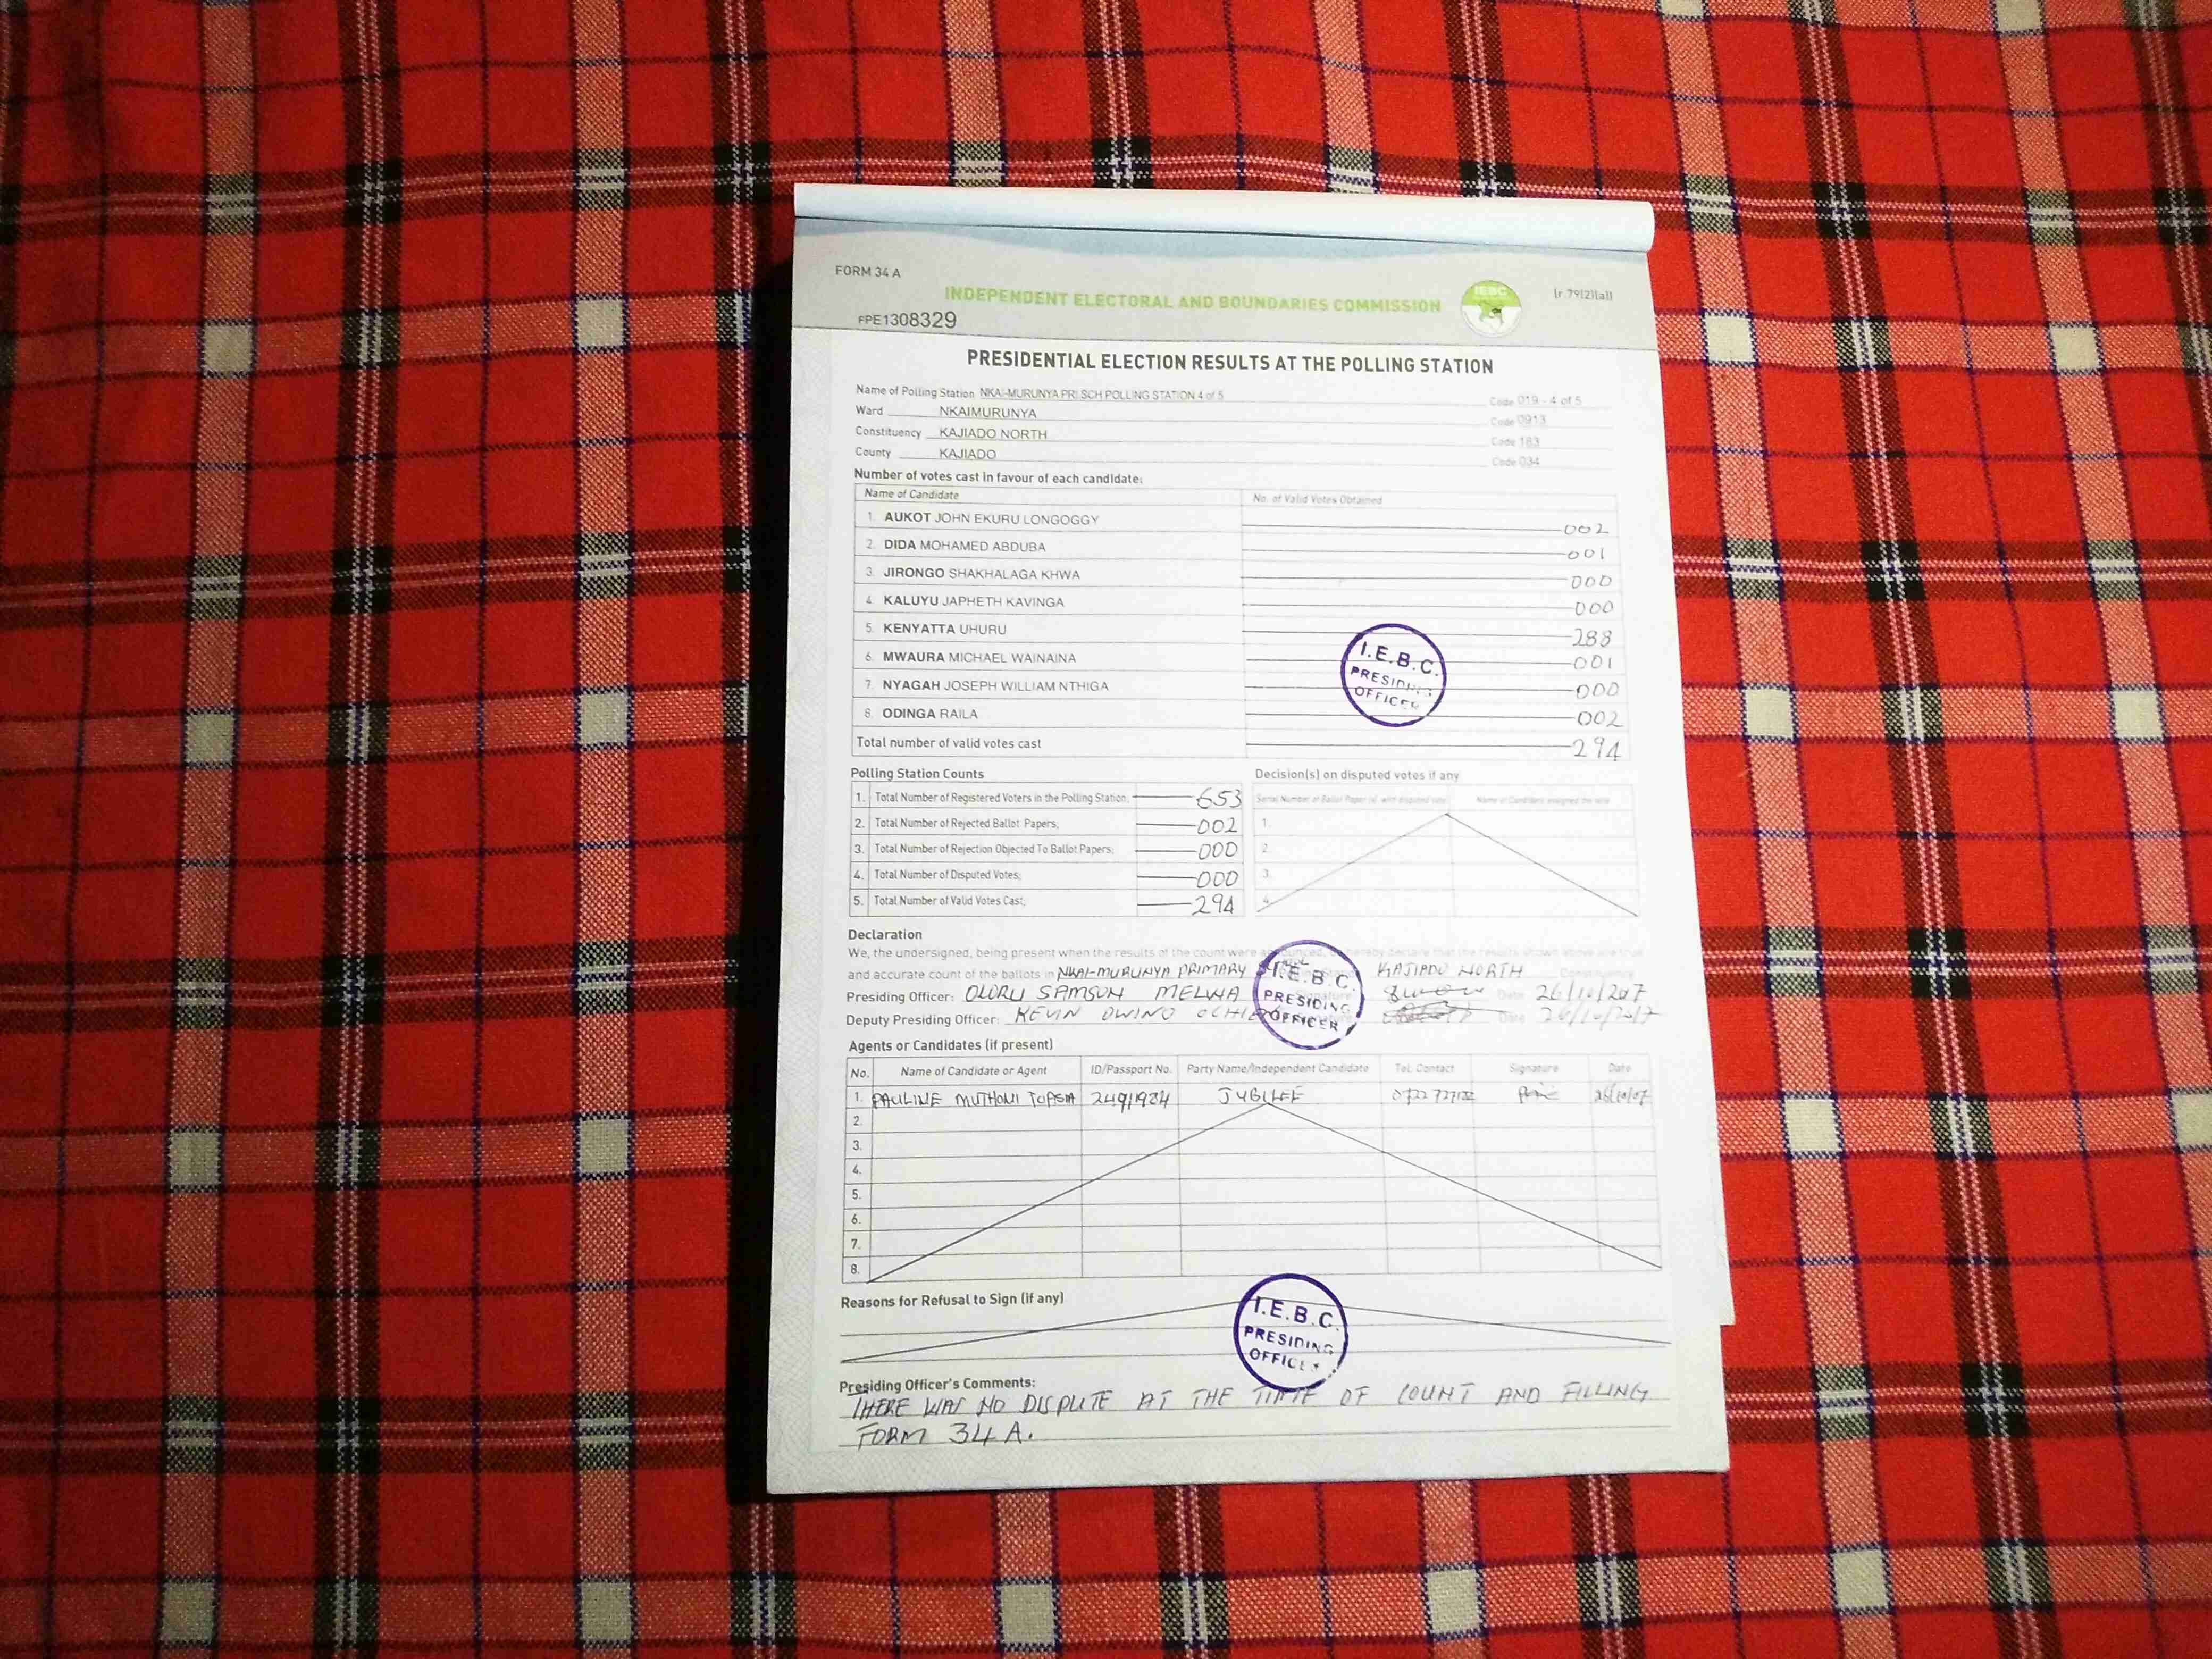 FORM 34 A
INDEPENDENT ELECTORAL AND BOUNDARIES COMMISSION
IEBC
(r.79(2)(a))
FPE1308329
PRESIDENTIAL ELECTION RESULTS AT THE POLLING STATION
Name of Polling Station NKAI-MURUNYA PRI SCH POLLING STATION 4 of 5 Code 019 - 4 of 5
Ward NKAIMURUNYA Code 0913
Constituency KAJIADO NORTH Code 183
County KAJIADO Code 034
Number of votes cast in favour of each candidate:
Name of Candidate No. of Valid Votes Obtained
1. AUKOT JOHN EKURU LONGOGGY 002
2. DIDA MOHAMED ABDUBA 001
3. JIRONGO SHAKHALAGA KHWA 000
4. KALUYU JAPHETH KAVINGA 000
5. KENYATTA UHURU 288
6. MWAURA MICHAEL WAINAINA 001
7. NYAGAH JOSEPH WILLIAM NTHIGA 000
8. ODINGA RAILA 002
Total number of valid votes cast 294
I.E.B.C.
PRESIDING
OFFICER
Polling Station Counts
1. Total Number of Registered Voters in the Polling Station; 653
2. Total Number of Rejected Ballot Papers; 002
3. Total Number of Rejection Objected To Ballot Papers; 000
4. Total Number of Disputed Votes; 000
5. Total Number of Valid Votes Cast; 294
Decision(s) on disputed votes if any
Serial Number of Ballot Paper (s) with disputed vote Name of Candidate assigned the vote
1.
2.
3.
4.
Declaration
We, the undersigned, being present when the results of the count were announced, do hereby declare that the results shown above are true
and accurate count of the ballots in NKAI-MURUNYA PRIMARY KAJIADO NORTH Constituency
Presiding Officer: OLORU SAMSON MELWA Signature Date 26/10/2017
Deputy Presiding Officer: KEVIN OWINO Signature Date 26/10/2017
I.E.B.C.
PRESIDING
OFFICER
Agents or Candidates (if present)
No. Name of Candidate or Agent ID/Passport No. Party Name/Independent Candidate Tel. Contact Signature Date
1. PAULINE MUTHONI JUBILEE
2.
3.
4.
5.
6.
7.
8.
Reasons for Refusal to Sign (if any)
I.E.B.C.
PRESIDING
OFFICER
Presiding Officer's Comments:
THERE WAS NO DISPUTE AT THE TIME OF COUNT AND FILLING
FORM 34 A.